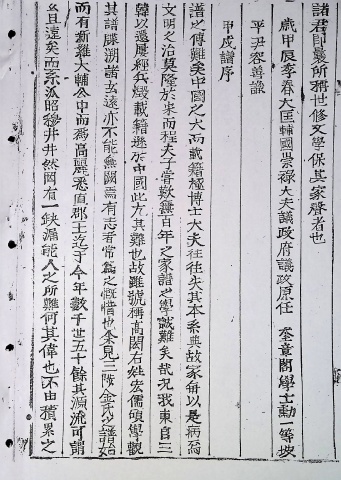 諸君卽襲所稱世修文學保其家聲者也
歲甲辰季春大匡輔國崇祿大夫議政府議政原任 奎章閣學士勳一等坡
平尹容善識
甲戌譜序
譜之傳難矣中國之大而載籍極博士大夫往往失其本系典故家每以是病焉
文明之治莫隆於宋而程夫子嘗歎無百年之家譜之學誠難矣哉況我東自三
韓以還屢經兵燹載籍遜於中國此尤其難也故雖號稱高閥右姓宏儒碩學觀
其譜牒溯諸玄遠亦不能無闕焉有志者常爲之慨惜也余見三陟金氏譜始
而有新羅大輔公中而爲高麗悉直郡王迄于今年數千世五十餘其源流可謂
久且遠矣而系派昭穆井井然罔有一缺漏能人之所難何其偉也不由積累之